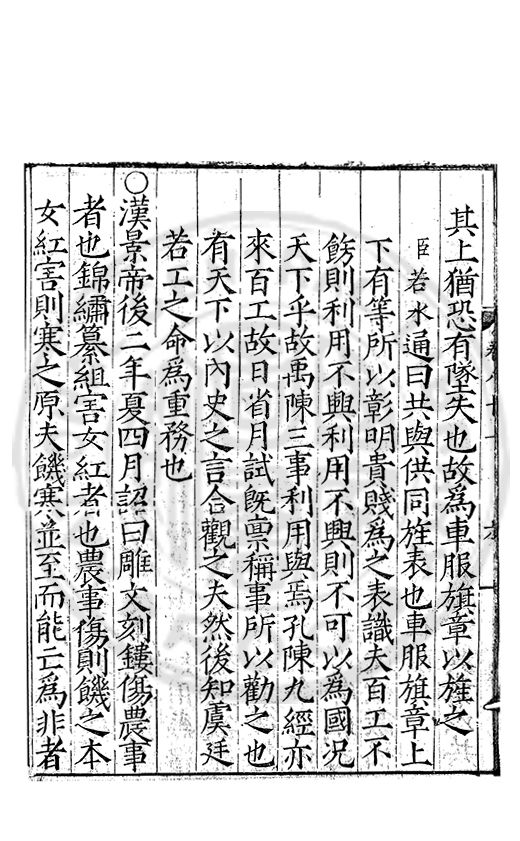 其上猶恐有墜失也故為車服旗章以旌之
臣若水通曰共與供同旌表也車服旗章上
下有等所以彰明貴賤為之表識夫百工不
餝則利用不興利用不興則不可以為國况
天下乎故禹陳三事利用與焉孔陳九經亦
來百工故日省月試旣禀稱事所以勸之也
有天下以內史之言合觀之夫然後知虞廷
若工之命為重務也
○漢景帝後二年夏四月詔曰雕文刻鏤傷農事
者也錦繡纂組害女紅者也農事傷則饑之本
女紅害則寒之原夫饑寒並至而能亡為非者